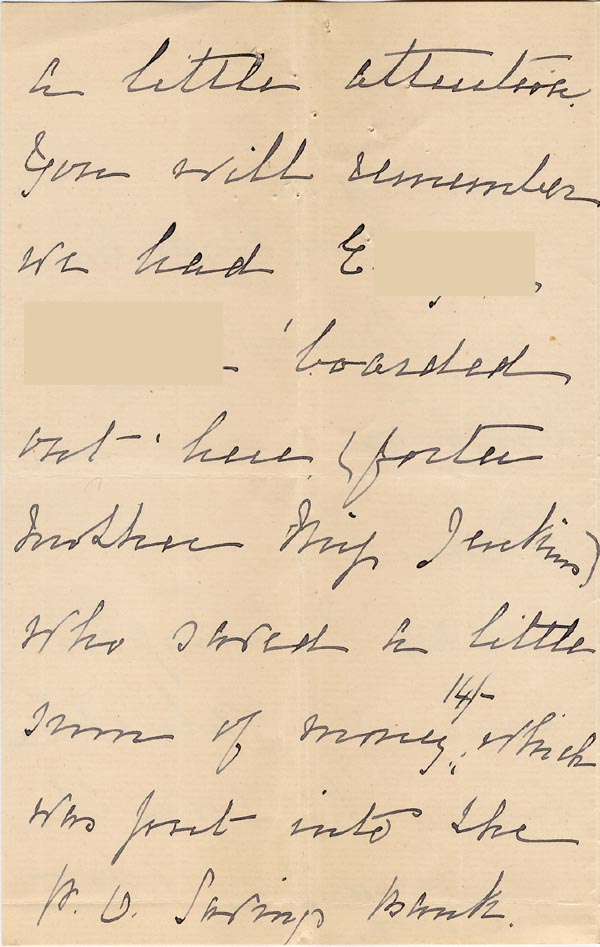 a little attention.
You will remember
we had E
- 'boarded
out' here (foster
Mother Miss Jenkins)
who saved a little
sum of money, 14/- which
was put into the
P. O. Savings Bank.